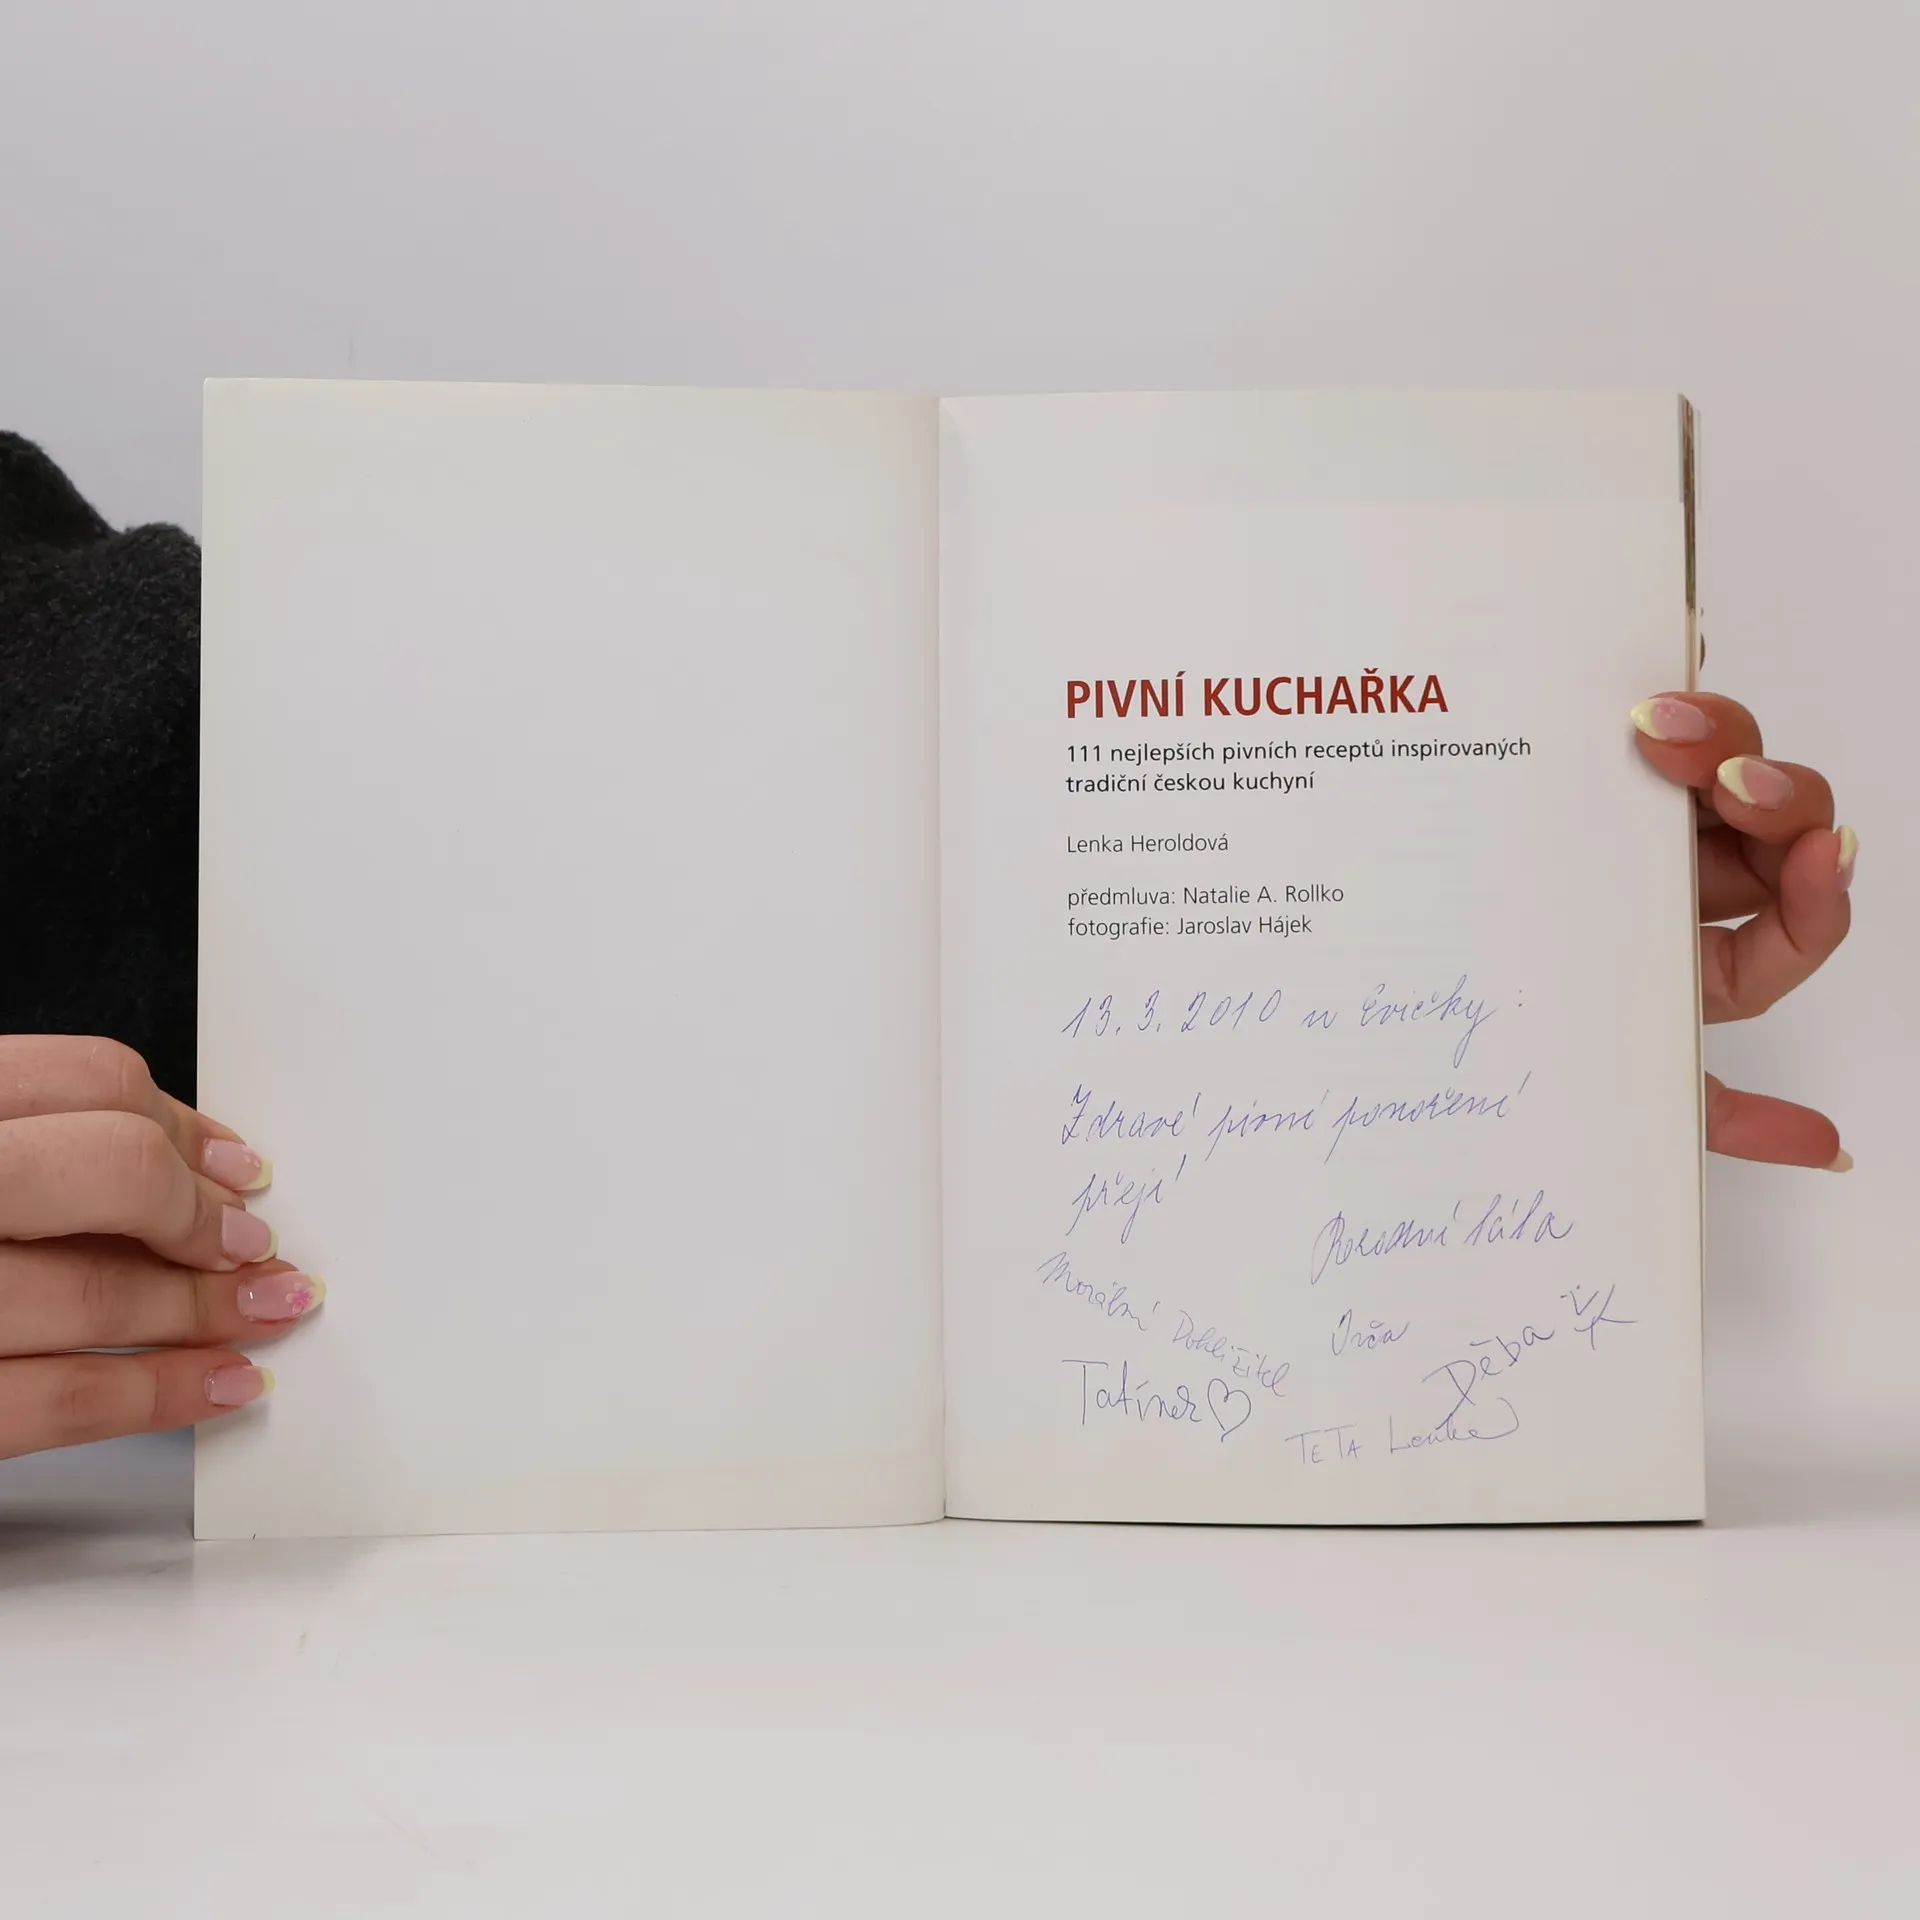 PIVNÍ KUCHAŘKA
111 nejlepších pivních receptů inspirovaných
tradiční českou kuchyní
Lenka Heroldová
předmluva: Natalie A. Rollko
fotografie: Jaroslav Hájek
13. 3. 2010 u Evičky :
Zdravé pivní ponoření
přejí
Morální Dohližitel
Děba
TETA Lenka